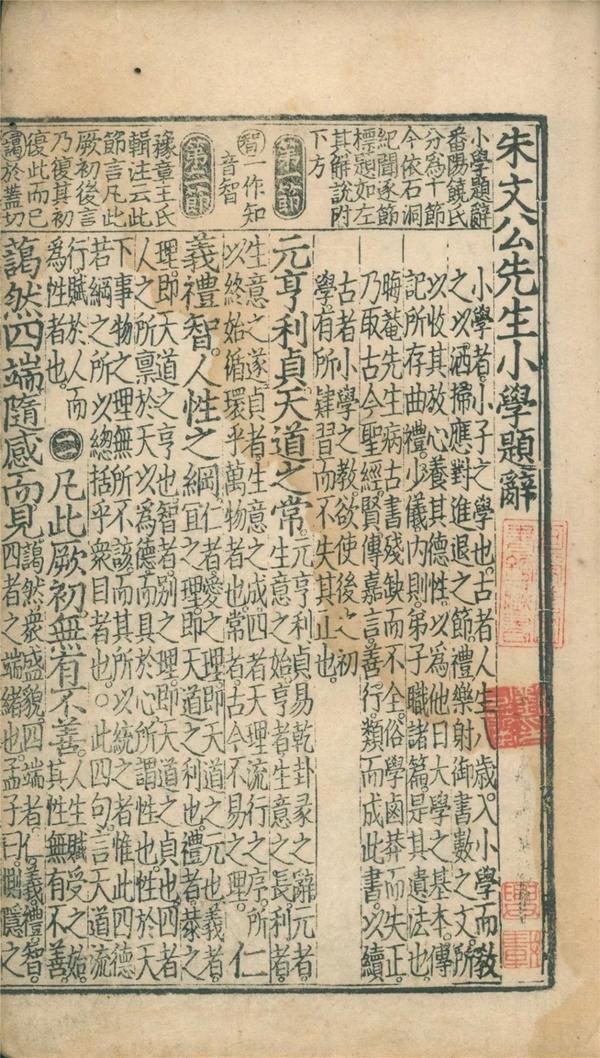 朱文公先生小學題辭
小學題辭
番陽饒氏
分爲十節
今依石洞
紀聞逐節
標題如左
其解說附
下方
第一節
智一作知
音智
第二節
豫章王氏
輯注云此
節言凡此
厥初後言
乃復其初
復此而已
藹於蓋切
小學者。小子之學也。古者人生八歲。入小學而敎
之以洒掃應對進退之節。禮樂射御書數之文。所
以收其放心。養其德性。以爲他日大學之基本。傳
記所存曲禮。少儀。內則。弟子職諸篇。是其遺法也。
晦菴先生病古書殘缺而不全。俗學鹵莽而失正。
乃取古今聖經。賢傳嘉言。善行。類而成此書。以續
古者小學之敎。欲使後之初
學。有所肄習而不失其正也。
元亨利貞。天道之常。
元亨利貞。易乾卦彖之辭。元者。
生意之始。亨者生意之長。利者。
生意之遂。貞者生意之成。四者天理流行之序。所
以終始循環乎萬物者也。常者古今不易之理。
仁
義禮智。人性之綱。
仁者愛之理。即天道之元也。義者。
宜之理。即天道之利也。禮者。恭之
理。即天道之亨也。智者。別之理。即天道之貞也。四者。
人之所禀於天以爲德而具於心。所謂性也。性於天
下事物之理。無所不該而其所以統之者。惟此四德
若綱之所以總括乎衆目者也。○此四句。言天道流
行。賦於人而
爲性者也。
二
凡此厥初。無有不善。
人生賦受之始。
其性無有不善。
藹然四端。隨感而見。
藹然。衆盛貌。四端者。仁義禮智。
四者之端緒也。孟子曰。惻隱之